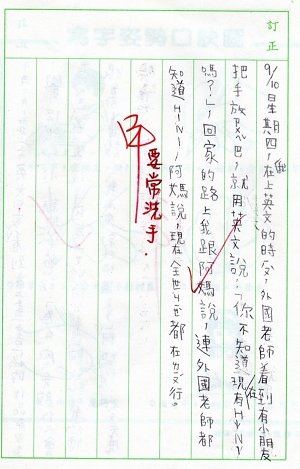 訂正
9/10星期四,在上英文的時,外國老師看到有小朋友
把手放巴,就用英文說:「你不知道現在有H1N1
嗎?」,回家的路上我跟阿媽說,連外國老師都
知道H1N1,阿媽說,現在全世都在行。
師
要常洗手.